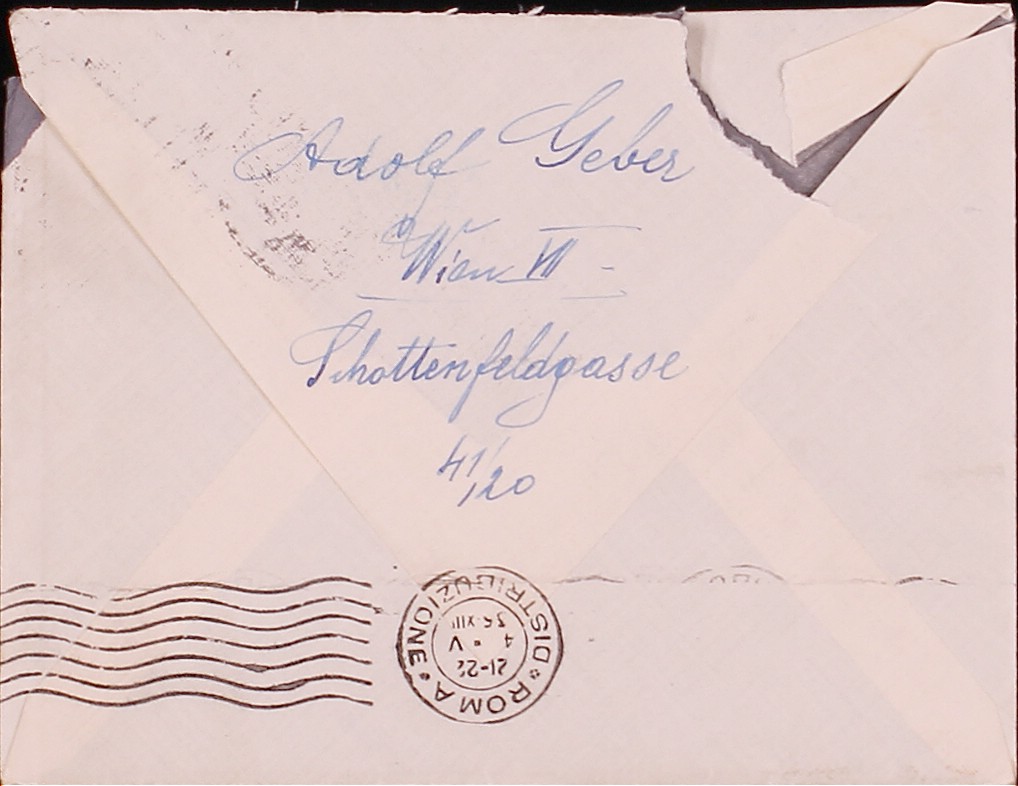 Adolf Geber
Wien VII -
Schottenfeldgasse
41/20
ROMA DISTRIBUZIONE
21-22
4 · V
36·XIII